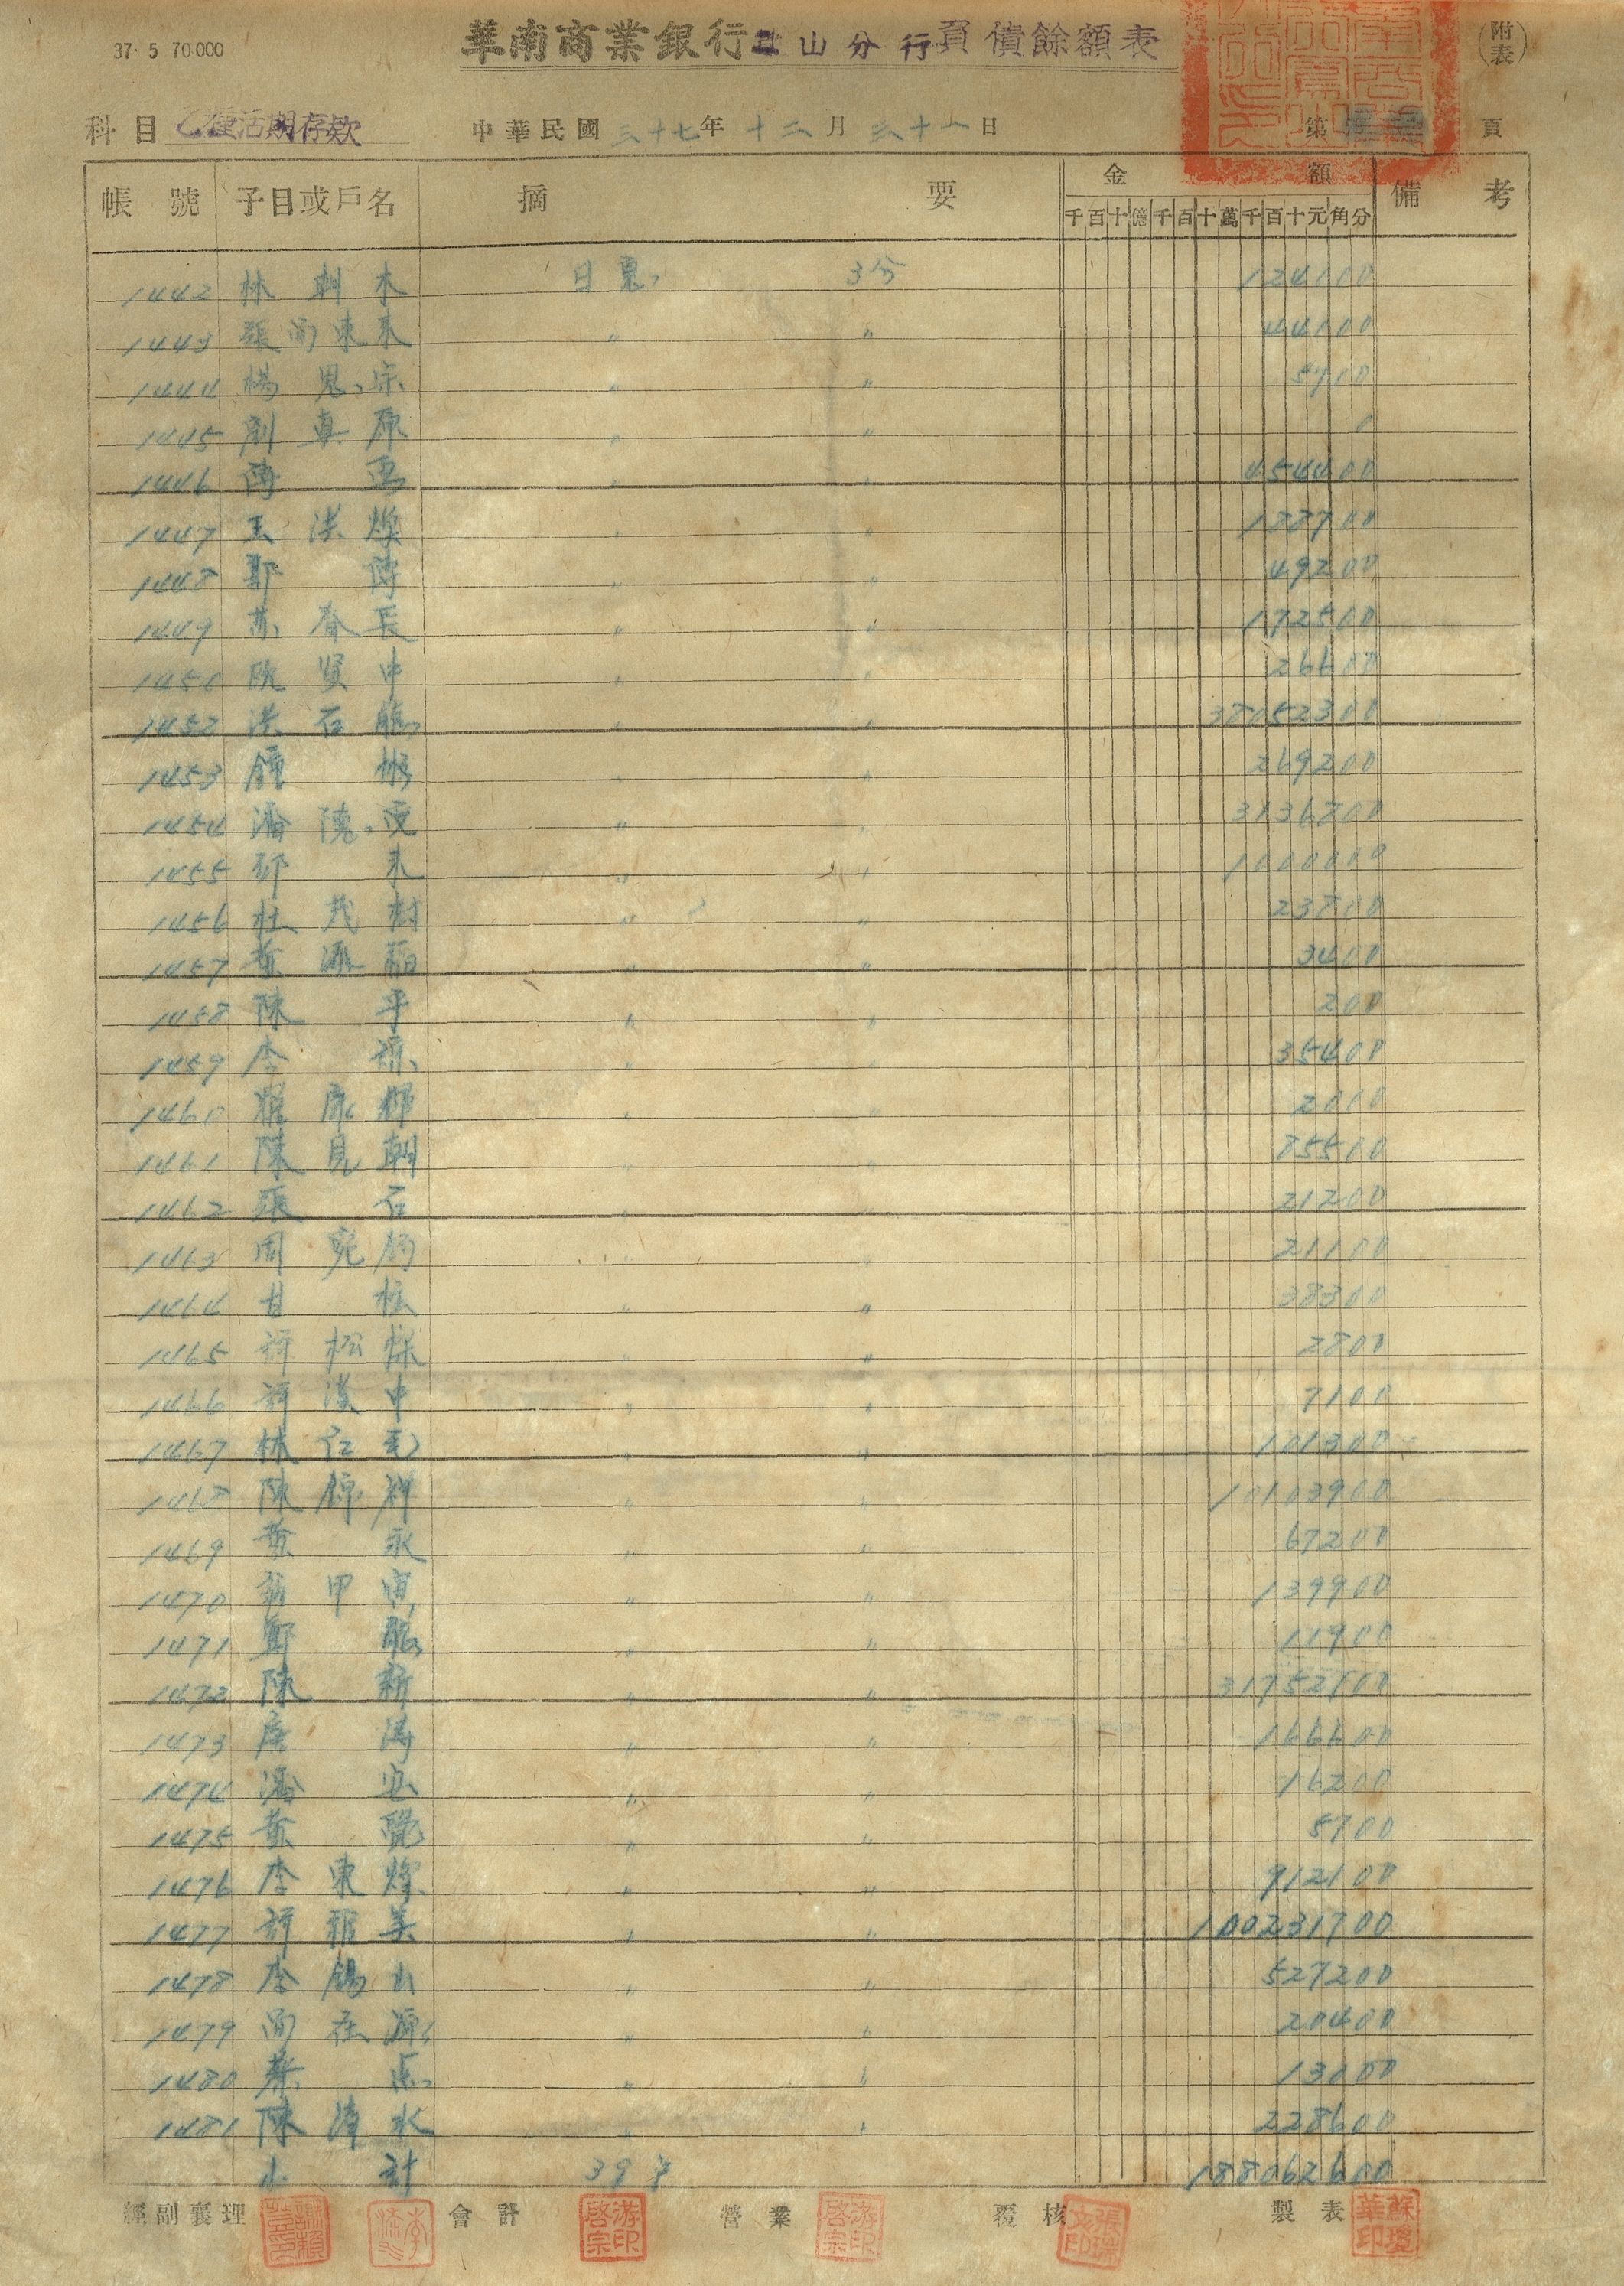 37· 5 70.000
華南商業銀行 山分行負債餘額表
(附表)
科目 乙種活期存款 中華民國三十七年十二月三十一日 第 頁
帳號 子目或戶名 摘要 金額 備考
千百十億千百十萬千百十元角分
1442 林朝木 日息 3分 124100
1443 張简東来 〃 〃 44100
1444 楊恩宗 〃 〃 5700
1445 劉専原 〃 〃 0
1446 陳 〃 〃 454400
1447 王洪煥 〃 〃 188700
1448 鄭 〃 〃 49200
1449 蘇春長 〃 〃 172500
1450 欧賢中 〃 〃 26600
1452 洪石臨 〃 〃 38052300
1453 鍾彬 〃 〃 269200
1454 潘德 〃 〃 3136800
1455 邱来 〃 〃 1000000
1456 杜茂樹 〃 〃 23800
1457 黄添福 〃 〃 3400
1458 陳平 〃 〃 200
1459 李福 〃 〃 35400
1460 康輝 〃 〃 2000
1461 陳見朝 〃 〃 85500
1462 張石 〃 〃 21200
1463 周 〃 〃 21100
1464 甘 〃 〃 38300
1465 許松 〃 〃 2800
1466 許漢中 〃 〃 7100
1467 林仁 〃 〃 101300
1468 陳錦祥 〃 〃 10103900
1469 黄永 〃 〃 67200
1470 甲寅 〃 〃 139900
1471 鄭臨 〃 〃 11900
1472 陳新 〃 〃 31752100
1473 唐 〃 〃 166600
1474 潘 〃 〃 16200
1475 黄 〃 〃 5700
1476 李東燦 〃 〃 912100
1477 許振美 〃 〃 100231700
1478 李錫山 〃 〃 527200
1479 简在源 〃 〃 20400
1480 蔡 〃 〃 13000
1481 陳清水 〃 〃 228600
小計 39户 188062600
經副襄理 會計 營業 覆核 製表
游啓宗印 游啓宗印 蘇瓊華印